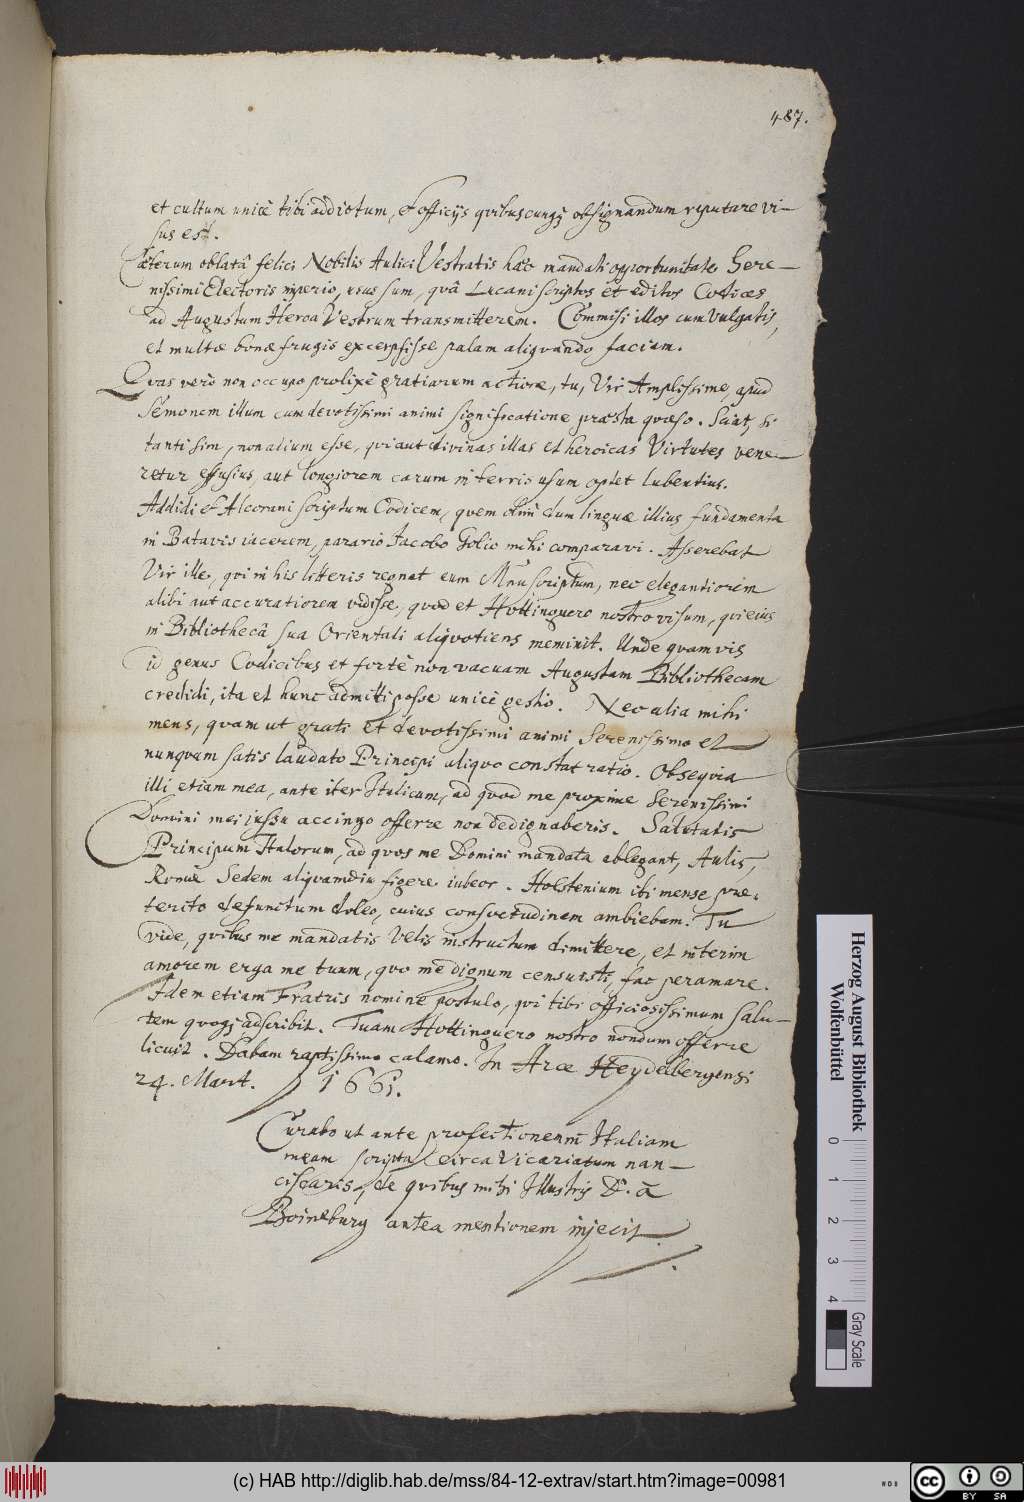 487.
et cultum unicè tibi addictum, et officijs quibuscunqꝫ obsignandum reputare vi-
sus est.
Cæterum oblatâ felici Nobilis Aulici Vestratis hac mandati opportunitate, Sere-
nissimi Electoris imperio, usus sum, quâ Lucani scriptos et editos Codices
ad Augustum Heroa Vestrum transmitterem. Commisi illos cum vulgatis,
et multæ bonæ frugis excerpsisse palam aliquando faciam.
Quas verò non occupo prolixè gratiarum actione, tu, Vir Amplissime, apud
Semonem illum cum devotissimi animi significatione præsta quæso. Sciat, si
tanti sim, non alium esse, qui aut divinas illas et heroicas Virtutes vene-
retur effusius, aut longiorem earum in terris usum optet lubentius.
Addidi et Alcorani scriptum Codicem, quem olim dum linguæ illius fundamenta
in Batavis iacerem, parario Jacobo Golio mihi comparavi. Asserebat
Vir ille, qui in his litteris regnat eum Manuscriptum, nec elegantiorem
alibi aut accuratiorem vidisse, quod et Hottinguero nostro visum, qui eius
in Bibliothecâ sua Orientali aliquotiens meminit. Unde quamvis
id genus Codicibus et fortè non vacuam Augustam Bibliothecam
credidi, ita et hunc admitti posse unicè gestio. Nec alia mihi
mens, quam ut grati et devotissimi animi Serenissimo et
nunquam satis laudato Principi aliquo constat ratio. Obsequia
illi etiam mea, ante iter Italicum, ad quod me proxime Serenissimi
Domini mei iussu accingo offerre non dedignaberis. Salutatis
Principum Italorum, ad quos me Domini mandata ablegant, Aulis,
Romæ Sedem aliquamdiu figere iubeor. Holstenium ibi mense præ-
terito defunctum doleo, cuius consuetudinem ambiebam. Tu
vide, quibus me mandatis Velis instructum dimittere, et interim
amorem erga me tuum, quo me dignum censuisti, fac peramare.
Idem etiam Fratris nomine postulo, qui tibi officiosissimum salu-
tem quoqꝫ adscribit. Tuam Hottinguero nostro nondum offerre
licuit. Dabam raptissimo calamo. In Arce Heydelbergensi
24. Mart. 1661.
Curabo ut ante profectionem in Italiam
meam scripta circa Vicariatum nan-
ciscaris, de quibus mihi Illustris D. à
Boineburg antea mentionem injecit.
Herzog August Bibliothek
Wolfenbüttel
0 1 2 3 4
Gray Scale
(c) HAB http://diglib.hab.de/mss/84-12-extrav/start.htm?image=00981
cc BY SA